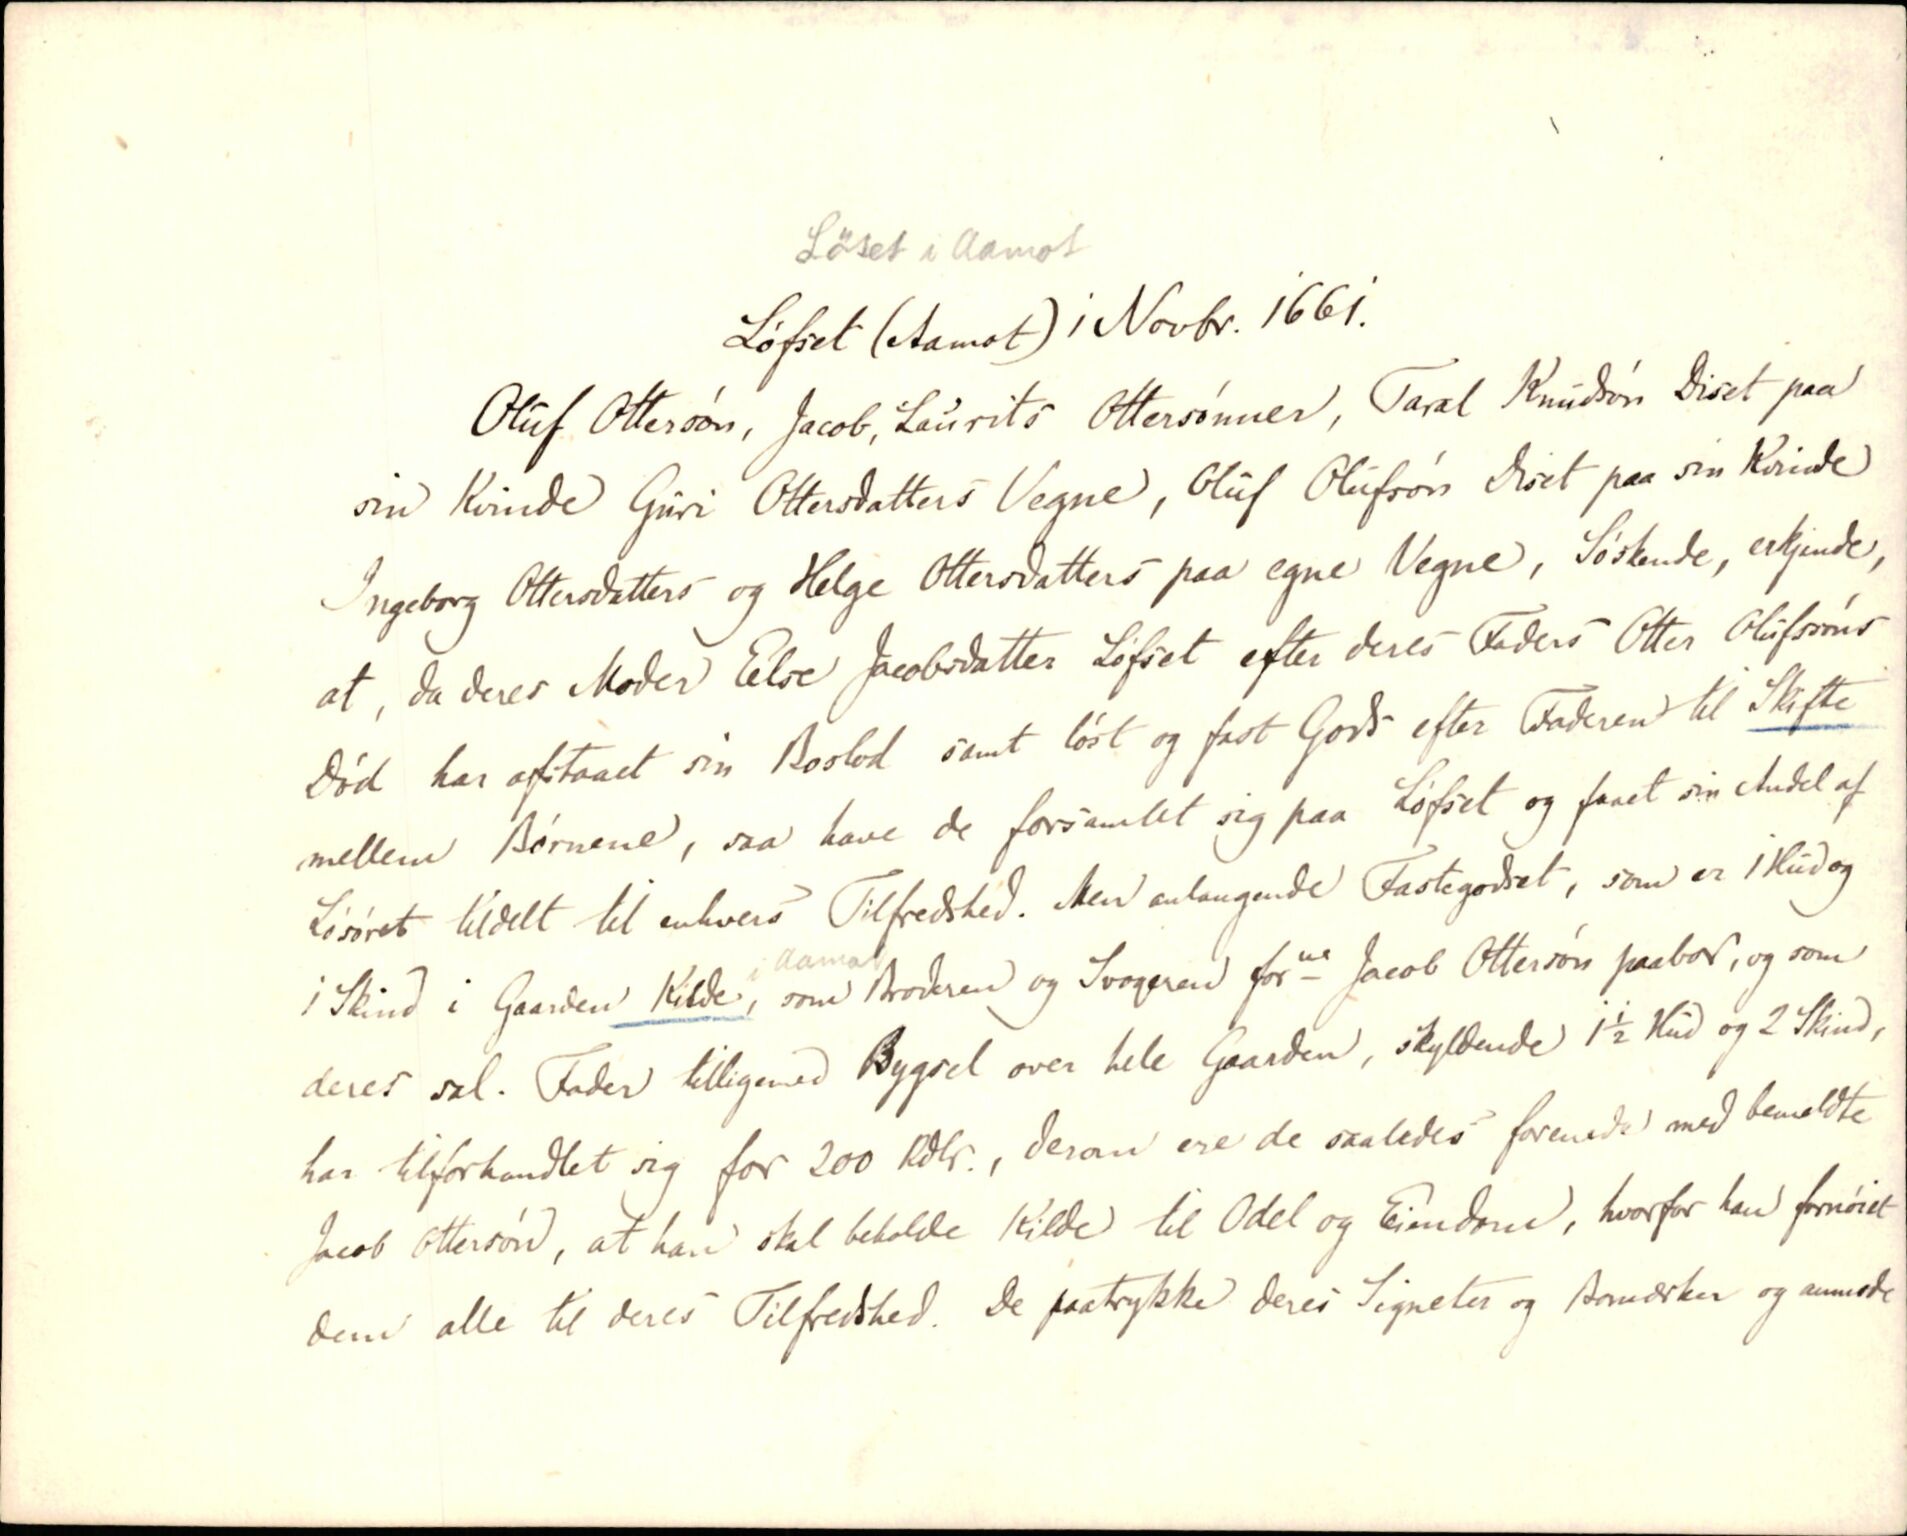 Löset i Aamot
Löfset (Aamot) i Novbr. 1661.
Oluf Ottersön, Jacob, Laurits Ottersönner, Taral Knudsön Diset paa
sin Kvinde Guri Ottersdatters Vegne, Oluf Olufsön Diset paa sin Kvinde
Ingeborg Ottersdatters og Helge Ottersdatters paa egne Vegne, Söskende, erkjende,
at, da deres Moder Eelse Jacobsdatter Löfset efter deres Faders Otter Olufssöns
Död har afstaaet sin Boslod samt löst og fast Gods efter Faderen til Skifte
mellem Börnene, saa have de forsamlet sig paa Löfset og faaet sin Andel af
Lösöret tildelt til enhvers Tilfredshed. Men anlangende Fastegodset, som er 1 Hud og
1 Skind i Gaarden Kilde i Aamot, som Broderen og Svogeren forne Jacob Ottersön paabor, og som
deres sal. Fader tilligemed Bygsel over hele Gaarden, skyldende 1½ Hud og 2 Skind,
har tilforhandlet sig for 200 Rdlr., derom ere de saaledes forenede med bemeldte
Jacob Ottersön, at han skal beholde Kilde til Odel og Eiendom, hvorfor han fornöiet
dem alle til deres Tilfredshed. De paatrykke deres Signeter og Bomærker og anmode